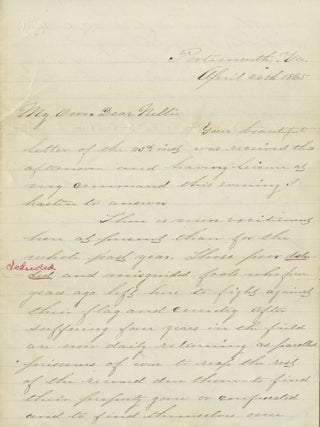 Portsmouth, Va.
April 26th 1865
My Own Dear Nettie
Your beautiful
letter of the 23rd inst was received this
afternoon and having leisure at
my command this evening I
hasten to answer.
There is more excitement
here at present than for the
whole past year. Those poor
deluded
and misguided fools who four
years ago left here to fight against
their flag and country after
suffering four years in the field
are now daily returning as paroled
prisoners of war to reap the rest
of the reward due them to find
their property gone or confiscated
and to find themselves once